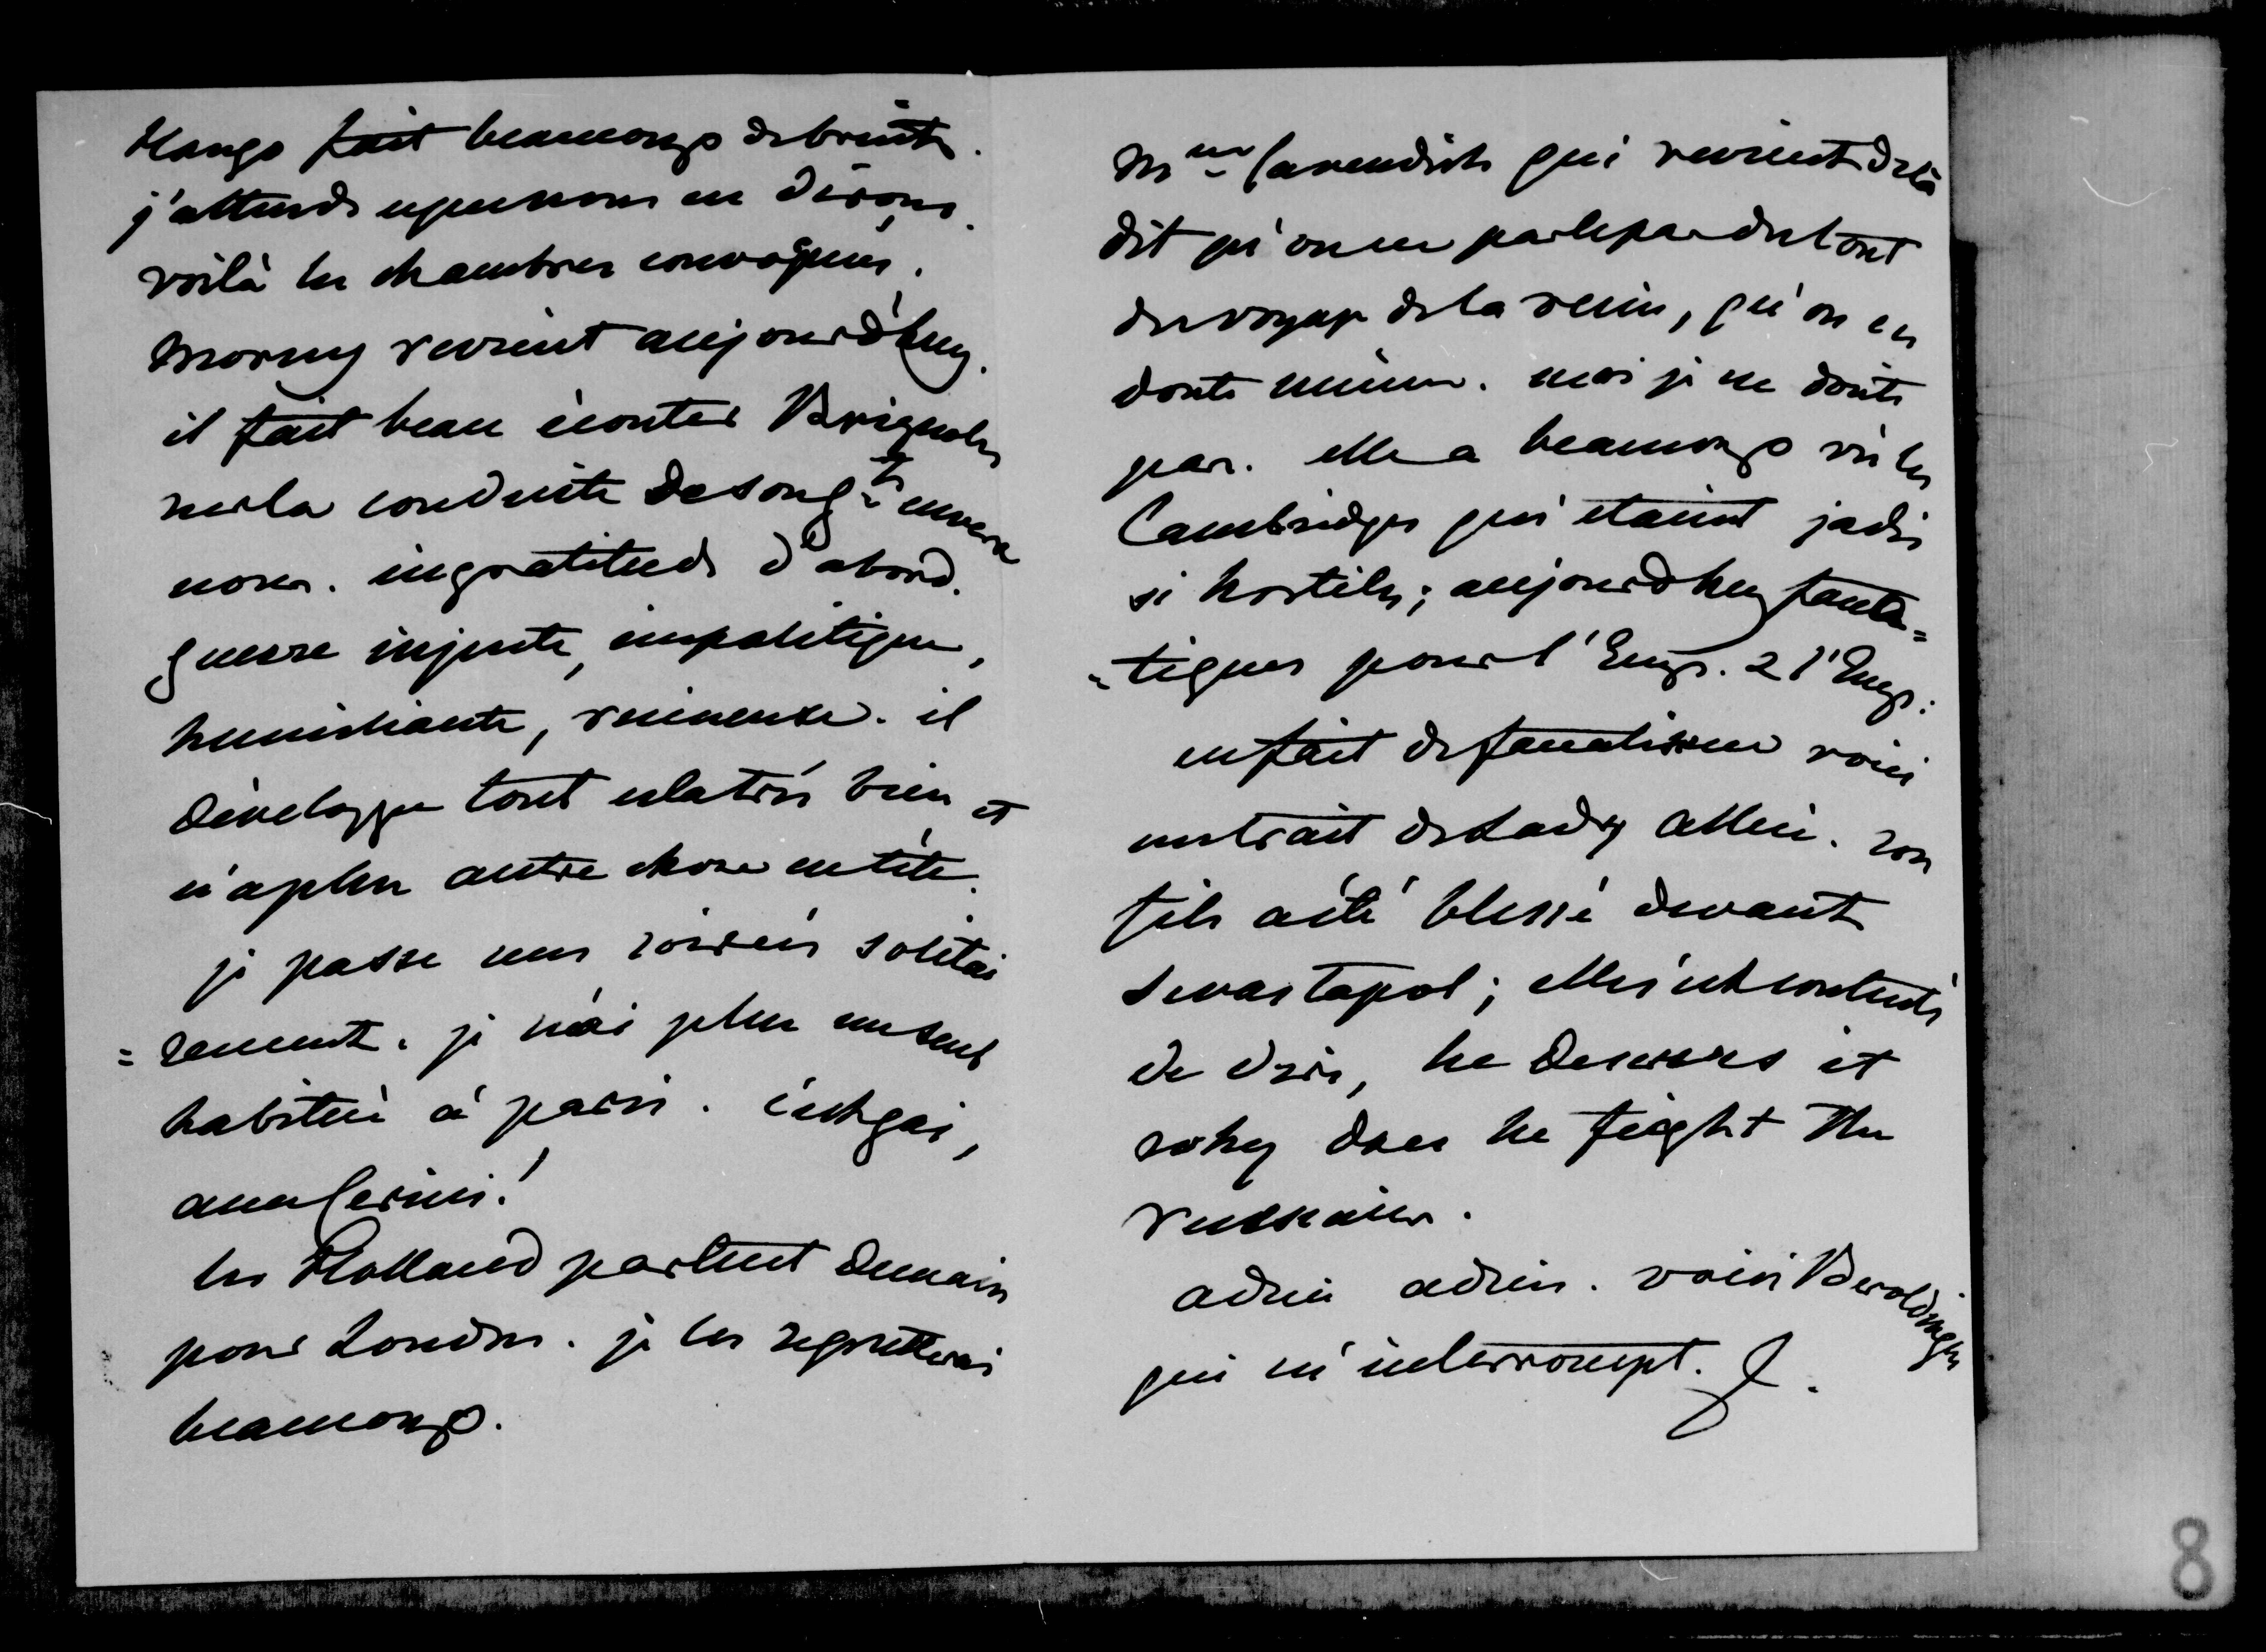 Hango fait beaucoup de bruit.
j'attends ce que nous en dirons.
voilà les chambres convoquées.
Morny revient aujourd'huy.
il fait beau écouter Brignoles
sur la conduite de son g^t envers
nous. ingratitude d'abord.
guerre injuste, impolitique,
humiliante, ruineuse. il
développe tout cela très bien et
n'a plus autre chose en tête.
je passe mes soirées solitai
=rement. je n'ai plus un seul
habitué à paris. c'est gai,
les Holland partent demain
pour Londres. je les regretterai
beaucoup.
M^me Cavendish qui revient de là
dit qu'on ne parle pas du tout
du voyage de la reine, qu'on en
doute même. moi je ne doute
pas. elle a beaucoup vu les
Cambridges qui étaient jadis
si hostiles; aujourdhuy fana=
=tiques pour l'Emp. & l'Emp:
en fait de fanatisme voici
un trait de Lady Allen. son
fils a été blessé devant
Sevastopol; elle s'est contentée
de dire, he deserves it
why does he feight the
russians.
adieu adieu. voici Beroldingen
qui m'interrompt.
8